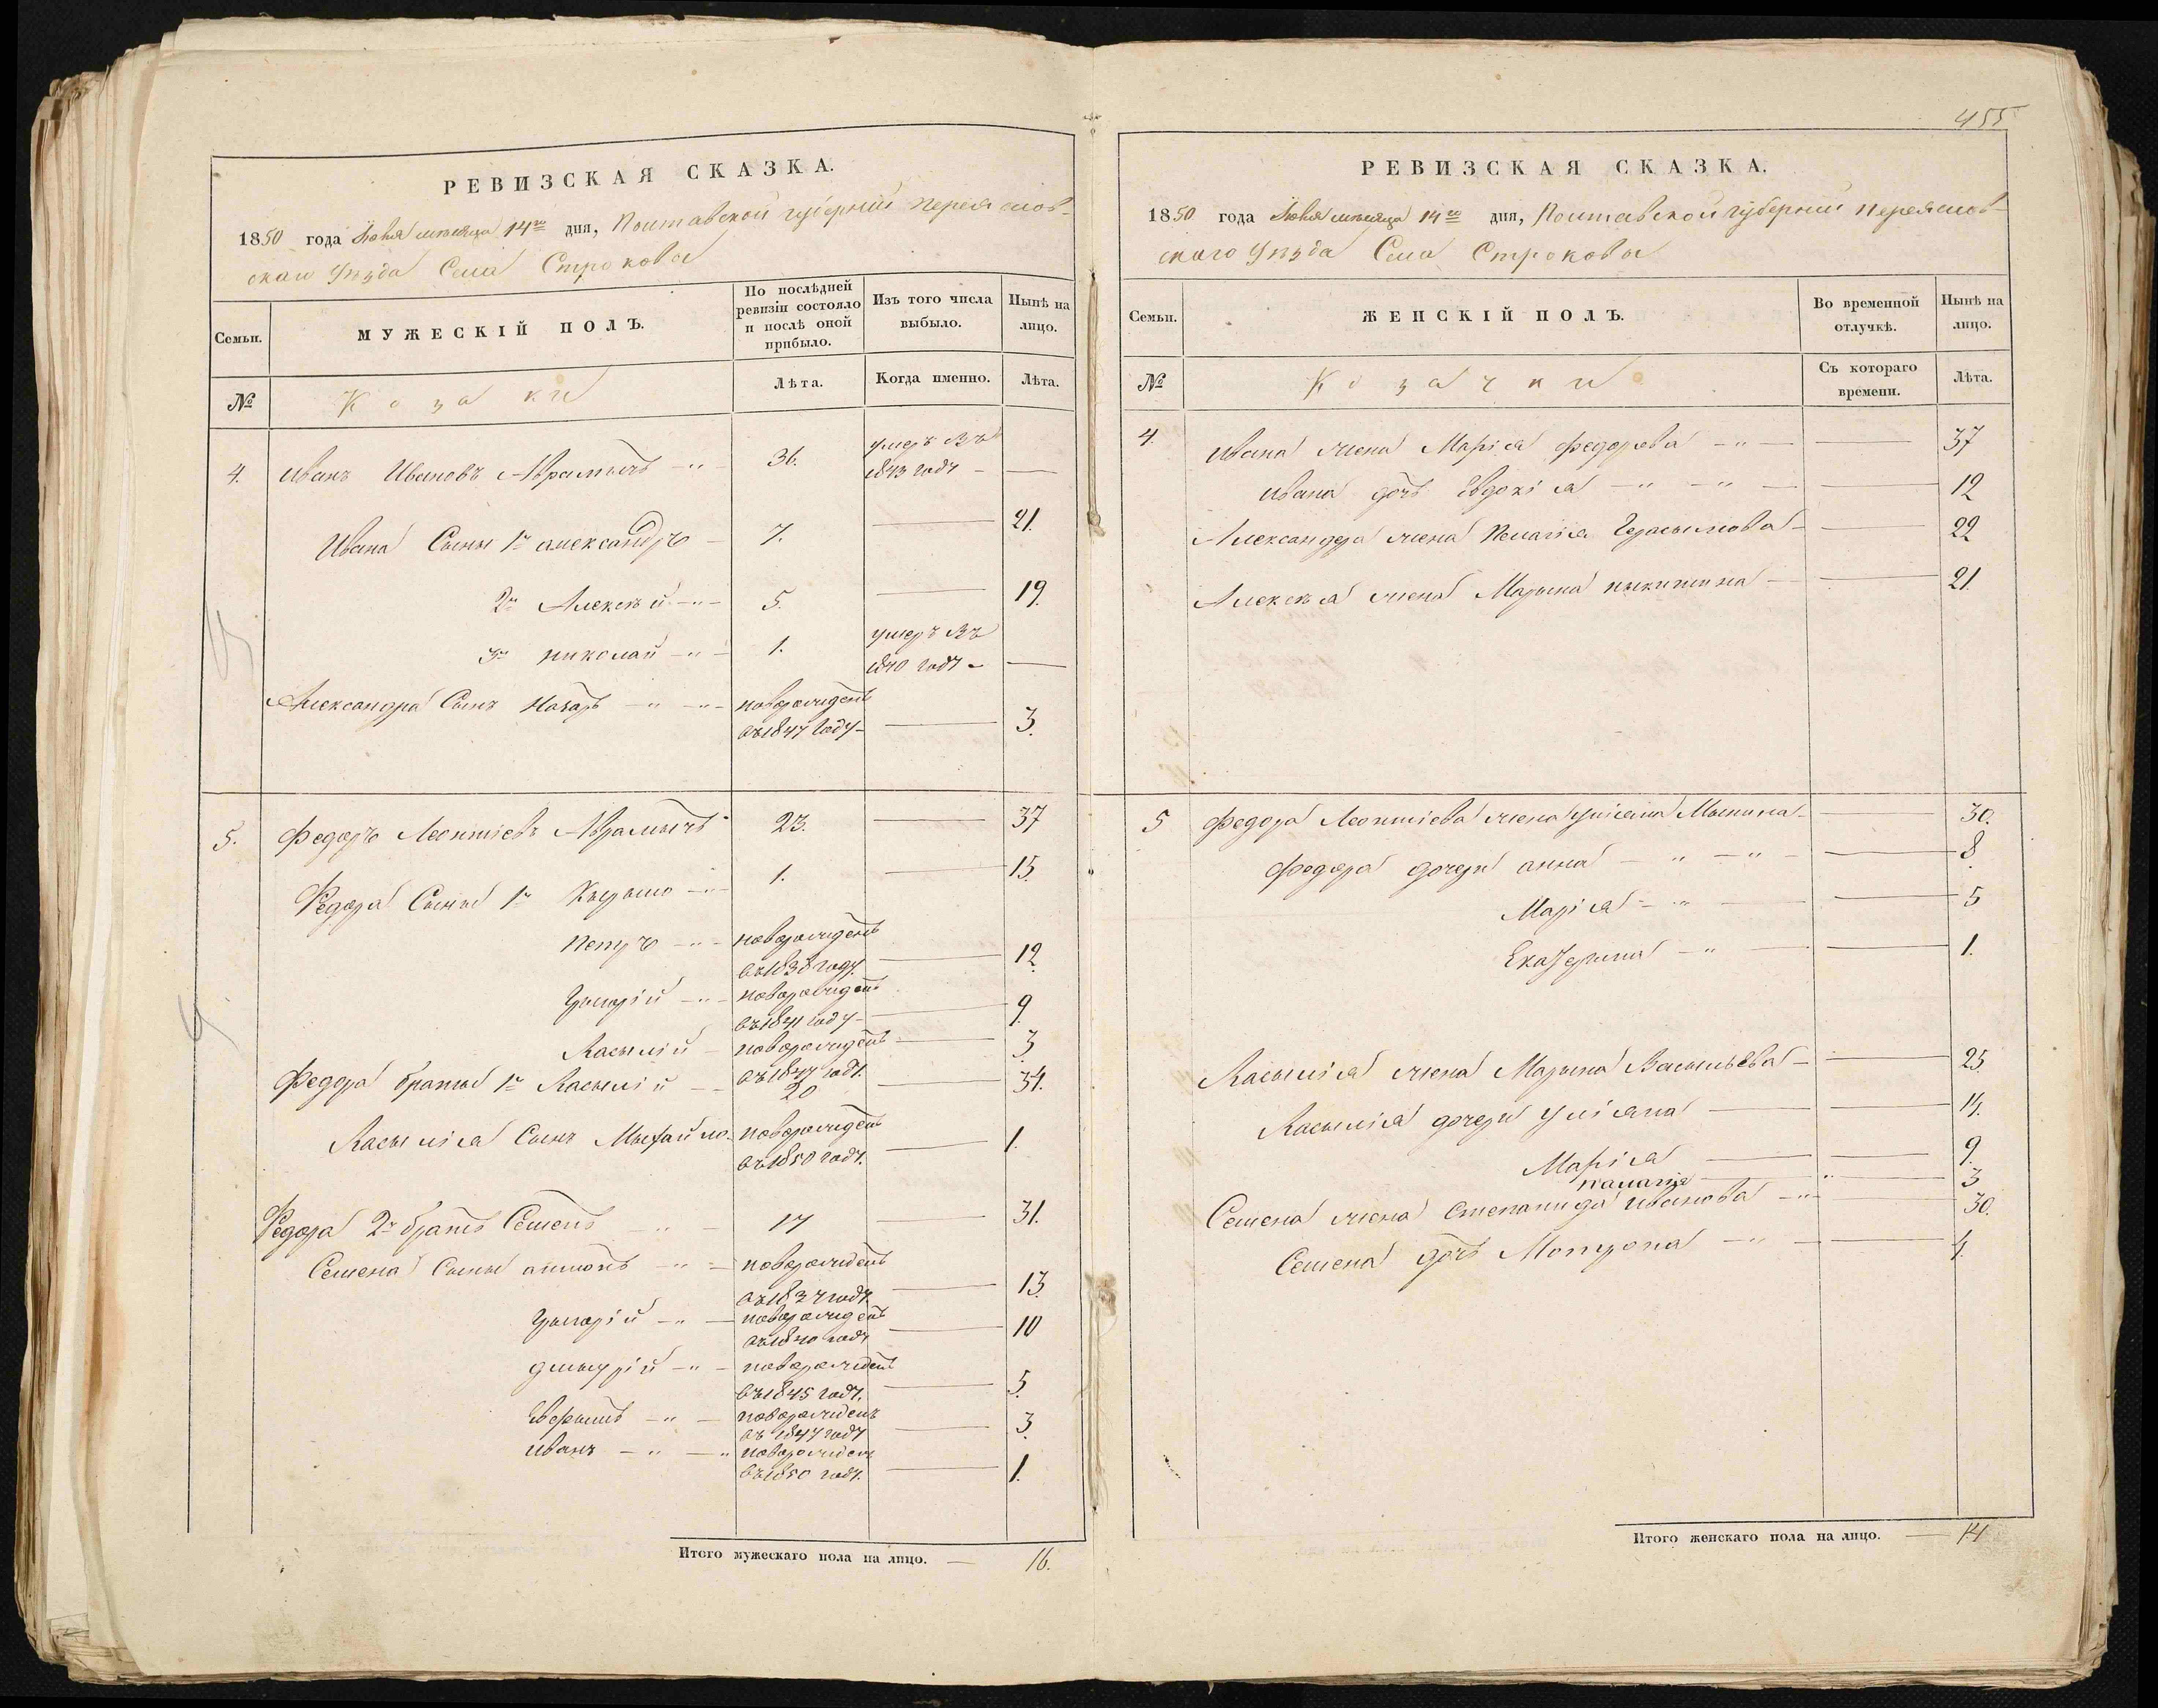 РЕВИЗСКАЯ СКАЗКА.
1850 года Іюня мѣсяца 14го дня, Полтавской губерніи Переяслов-
скаго Уѣзда Села Строковы
Семьи.
МУЖЕСКІЙ ПОЛЪ.
По послѣдней ревизіи состояло и послѣ оной прибыло.
Изъ того числа выбыло.
Нынѣ на лицо.
№
Козаки
Лѣта.
Когда именно.
Лѣта.
4. Иванъ Ивановъ Аврамычъ 36. умеръ въ 1843 году —
Ивана Сыны 1й александръ 7. — 21.
2й Алексѣй 5. — 19.
3й николай 1. умеръ въ 1840 году —
Александра Сынъ Назаръ новорожденъ въ 1847 году — 3.
5. Федоръ Леонтіевъ Аврамычъ 23. — 37
Федора Сыны 1й Кырыло 1. — 15.
петръ новорожденъ въ 1838 году. — 12.
Грыгорій новорожденъ въ 1841 году — 9.
Васылій новорожденъ въ 1847 году. — 3.
Федора братья 1й Васылій 20 — 34.
Васылія Сынъ Мыхайло новорожденъ въ 1850 году. — 1.
Федора 2й братъ Семенъ 17 — 31.
Семена Сыны антонъ новорожденъ въ 1837 году. — 13.
Грыгорій новорожденъ въ 1840 году — 10
дмытрій новорожденъ въ 1845 году. — 5.
новорожденъ въ 1847 году — 3.
иванъ новорожденъ въ 1850 году. — 1.
Итого мужескаго пола на лицо. — 16.
455
РЕВИЗСКАЯ СКАЗКА.
1850 года Іюня мѣсяца 14го дня, Полтавской губерніи Переяслов-
скаго Уѣзда Села Строковы
Семьи.
ЖЕНСКІЙ ПОЛЪ.
Во временной отлучкѣ.
Нынѣ на лицо.
№
Козачки
Съ котораго времени.
Лѣта.
4. Ивана жена Марія федорова — 37
Ивана дочь Евдокія — 12
Александра жена Пелагія Герасымова — 22
Алексѣя жена Марына ныкитина — 21.
5 Федора Леонтіева жена Уліяна — 30.
Федора дочери анна — 8
Марія — 5
Екатерына — 1.
Васылія жена Марына Васыльева — 25
Васылія дочери Уліяна — 14.
Марія — 9.
палагія — 3
Семена жена Степанида иванова — 30.
Семена дочь Мотрона — 4.
Итого женскаго пола на лицо. — 14